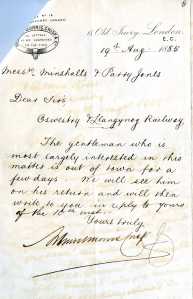 18 Old Jewry London
E.C.
19th Aug 1885
Messrs Minshalls & Parry Jones
Dear Sirs
Oswestry & Llangynog Railway.
The gentleman who is
most largely interested in this
matter is out of town for a
few days. We will see him
on his return and will then
write to you in reply to yours
of the 10th inst.
Yours truly.